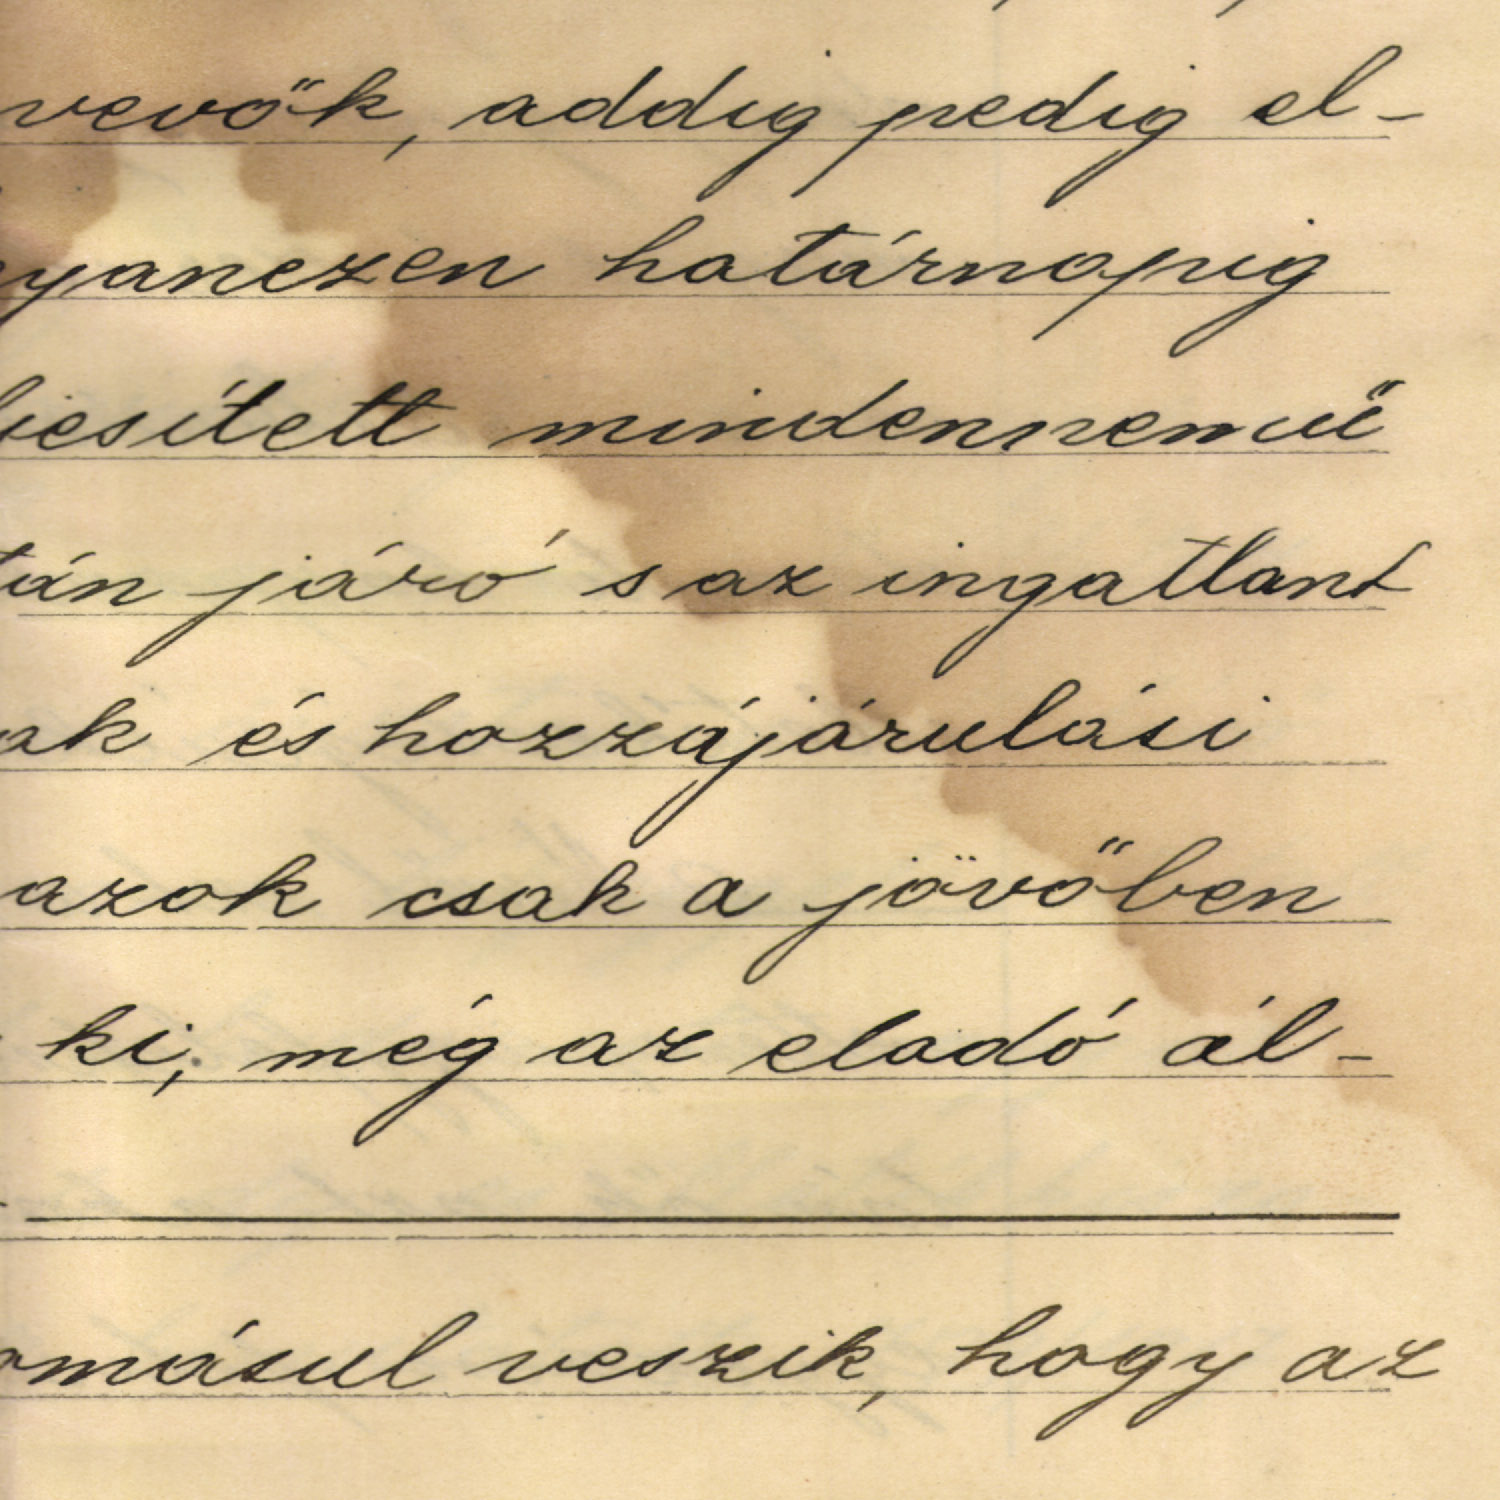 vevők, addig pedig el-
yanezen határnapig
iesített mindennemű
tán járó s az ingatlant
ak és hozzájárulási
azok csak a jövőben
ki, még az eladó ál-
omásul veszik, hogy az